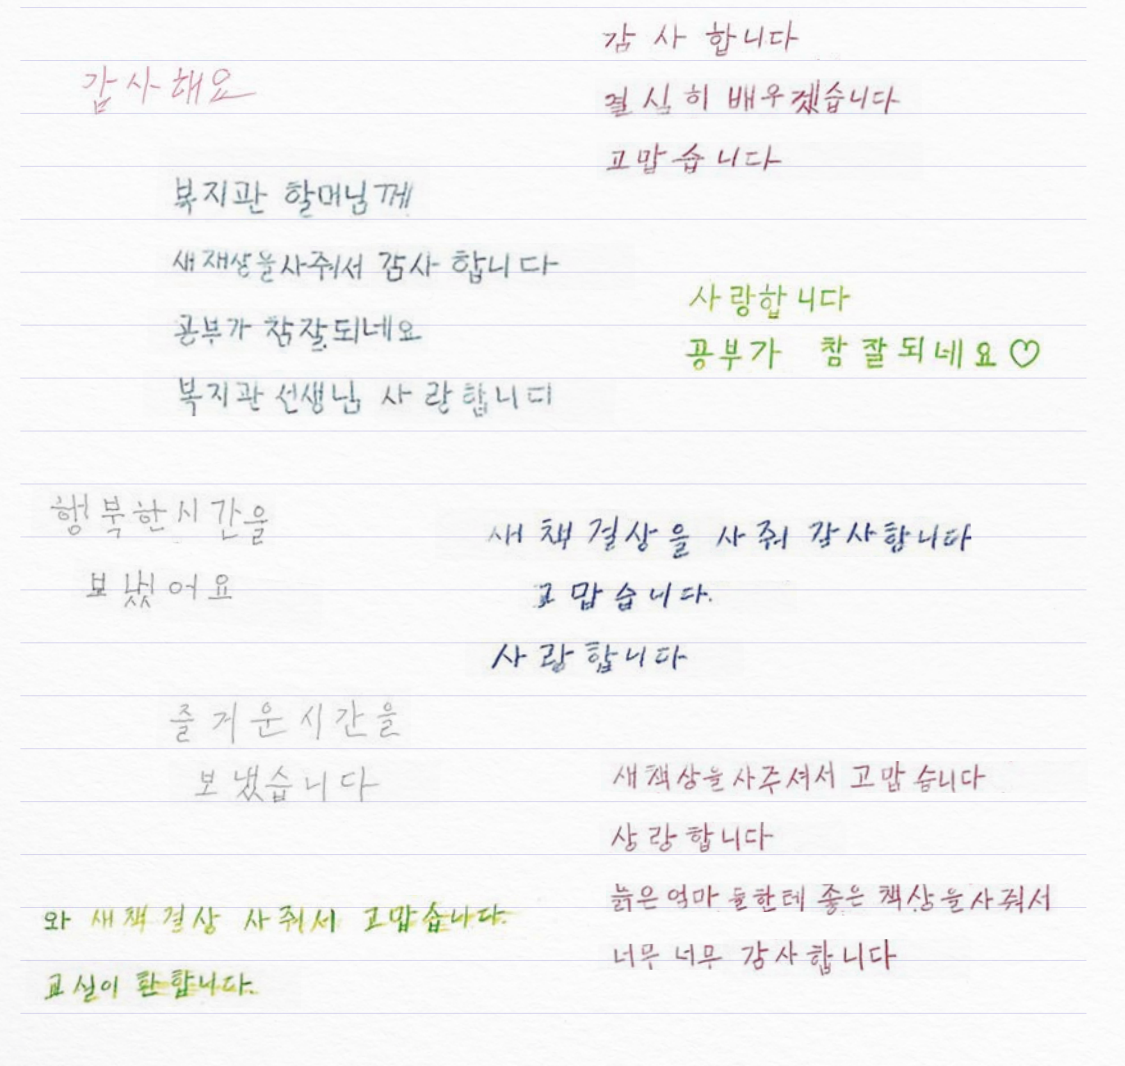 감사해요
감사합니다
열심히 배우겠습니다
고맙습니다
복지관 할머님께
새재상을사줘서 감사 합니다
공부가 참잘되네요
복지관선생님 사랑합니디
사랑합니다
공부가 참잘되네요♡
행복한시간을
보냈어요
새책걸상을 사줘 감사합니다
고맙습니다.
사랑합니다
즐거운시간을
보냈습니다
새책상을사주셔서 고맙습니다
상랑합니다
늙은엄마들한테 좋은 책상을사줘서
너무 너무 감사합니다
와 새책걸상 사줘서 고맙습니다.
교실이 환합니다.